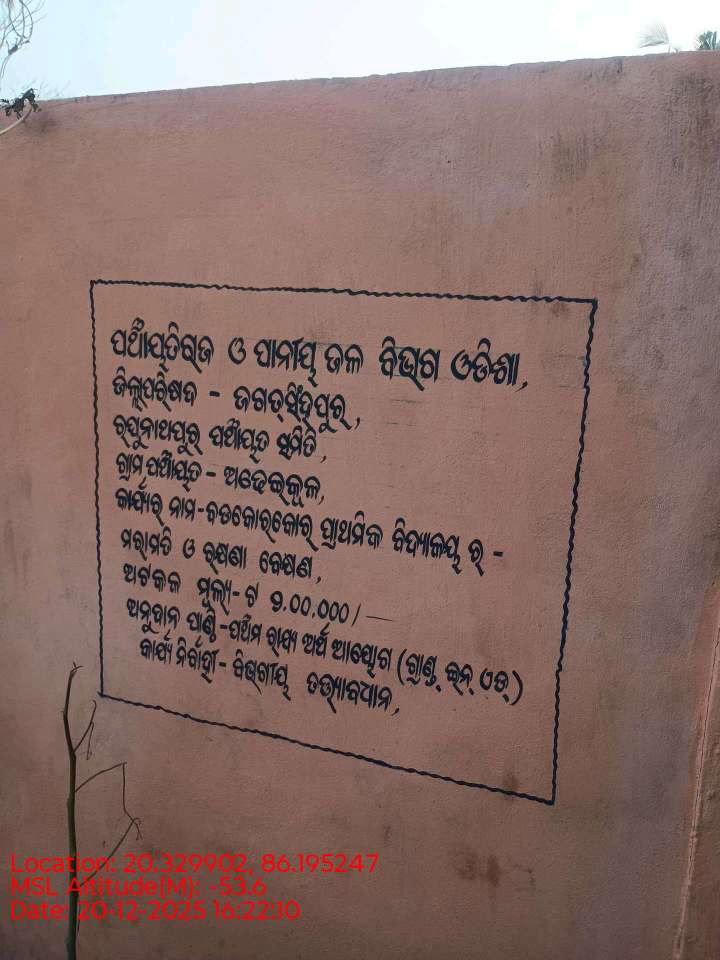 ପଞ୍ଚାୟତିରାଜ ଓ ପାନୀୟ ଜଳ ବିଭାଗ ଓଡିଶା,
ଜିଲ୍ଲାପରିଷଦ - ଜଗତସିଂହପୁର,
ରଘୁନାଥପୁର ପଞ୍ଚାୟତ ସମିତି,
ଗ୍ରାମ ପଞ୍ଚାୟତ - ଅଢେଇକୂଳ,
କାର୍ଯ୍ୟର ନାମ-ବଡକୋରକୋର ପ୍ରାଥମିକ ବିଦ୍ୟାଳୟ ର -
ମରାମତି ଓ ରକ୍ଷଣା ବେକ୍ଷଣ,
ଅଟକଳ ମୂଲ୍ୟ- ଟ ୨.00,000/-
ଅନୁଦାନ ପାଣ୍ଠି -ପଞ୍ଚମ ରାଜ୍ୟ ଅର୍ଥ ଆୟୋଗ (ଗ୍ରାଣ୍ଟ୍ ଇନ୍ ଏଡ୍)
କାର୍ଯ୍ୟ ନିର୍ବାହୀ - ବିଭାଗୀୟ ତତ୍ତ୍ୱାବଧାନ,
Location: 20.329902, 86.195247
MSL Altitude(M): -53.6
Date: 20-12-2025 16:22:10